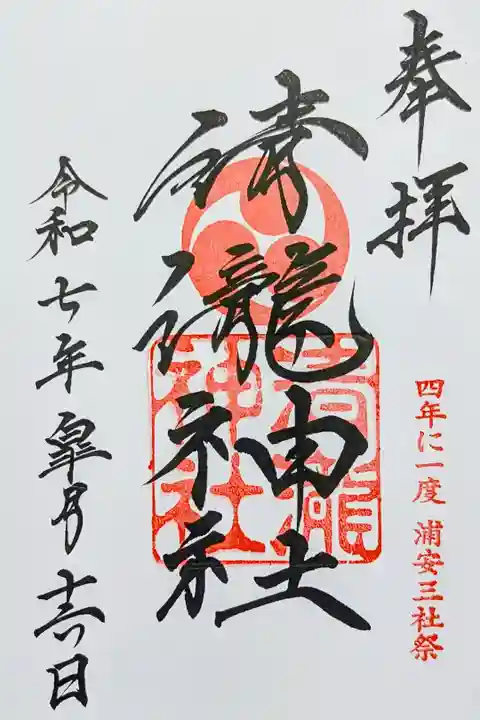 奉拝
清瀧神社
清瀧
神社
四年に一度 浦安三社祭
令和七年皐月十六日